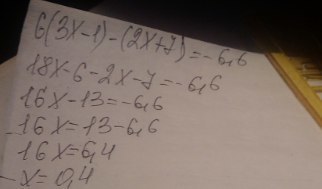 6(3x-1)-(2x+7)=-6,6
18x-6-2x-7=-6,6
16x-13=-6,6
16x=13-6,6
16x=6,4
x=0,4